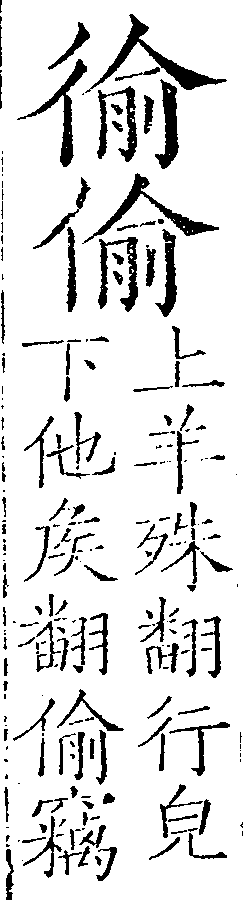 偷
上羊殊翻行皃
下他矦翻偷竊